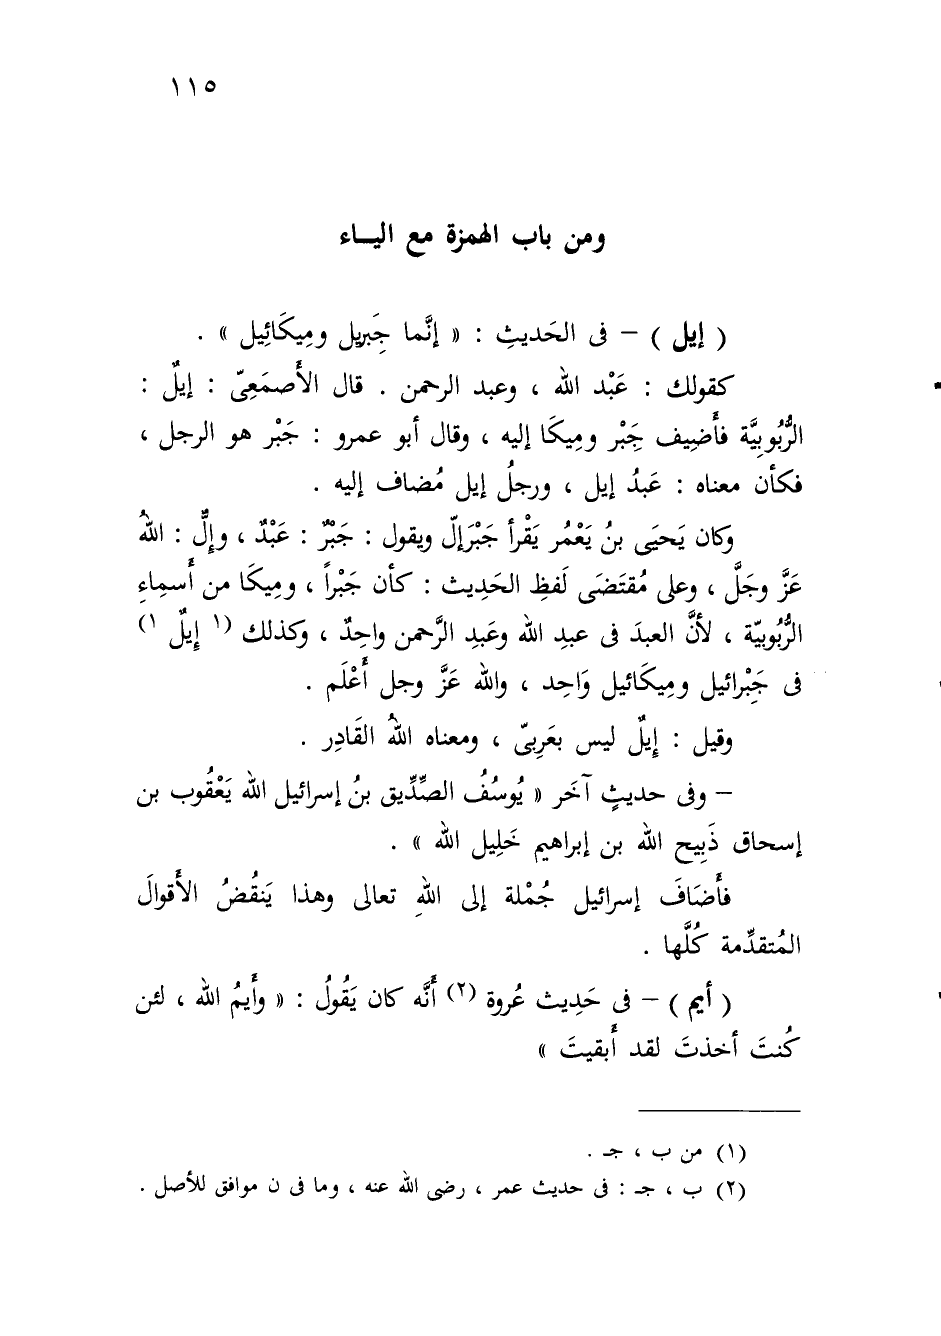 ١١٥
ومن باب الهمزة مع اليــاء
( إيل ) – فى الحَديثِ : « إنَّما جَِبريل ومِيكَائِيل » .
كقولك : عَبْد الله ، وعبد الرحمن . قال الأَصمَعِىّ : إيلٌ :
الرُّبُوبِيَّة فأُضِيف جَِبْر ومِيكَا إليه ، وقال أبو عمرو : جَبْر هو الرجل ،
فكأن معناه : عَبدُ إيل ، ورجلُ إيل مُضاف إليه .
وكان يَحيَى بنُ يَعْمُر يَقْرأ جَبْرَإلّ ويقول : جَبْرٌ : عَبْدٌ ، وإلٌّ : اللهُ
عَزَّ وجَلَّ ، وعلى مُقتَضَى لَفظِ الحَدِيث : كأن جَبْراً ، ومِيكَا من أَسمِاءِ
الرُّبُوبيّة ، لأنَّ العبدَ فى عبدِ الله وعَبدِ الرَّحمن واحِدٌ ، وكذلك (١ إِيلٌ ١)
فى جَِبْرائيل ومِيكَائيل وَاحِد ، والله عَزَّ وجل أَعْلَم .
وقيل : إِيلٌ ليس بعَرِبىّ ، ومعناه اللهُ القَادِر .
– وفى حديثٍ آخَر « يُوسُفُ الصِّدِّيق بنُ إسرائيل الله يَعْقُوب بن
إسحاق ذَبِيح الله بن إبراهيم خَلِيل الله » .
فأَضَافَ إسرائيل جُمْلة إلى اللهِ تعالى وهذا يَنقُضُ الأَقوالَ
المُتقدِّمة كُلَّها .
( أيم ) – فى حَدِيث عُروة (٢) أَنَّه كان يَقُولُ : « وأَيمُ الله ، لئن
كُنتَ أخذتَ لقد أَبقيتَ »
(١) من ب ، جـ .
(٢) ب ، جـ : فى حديث عمر ، رضى الله عنه ، وما فى ن موافق للأصل .